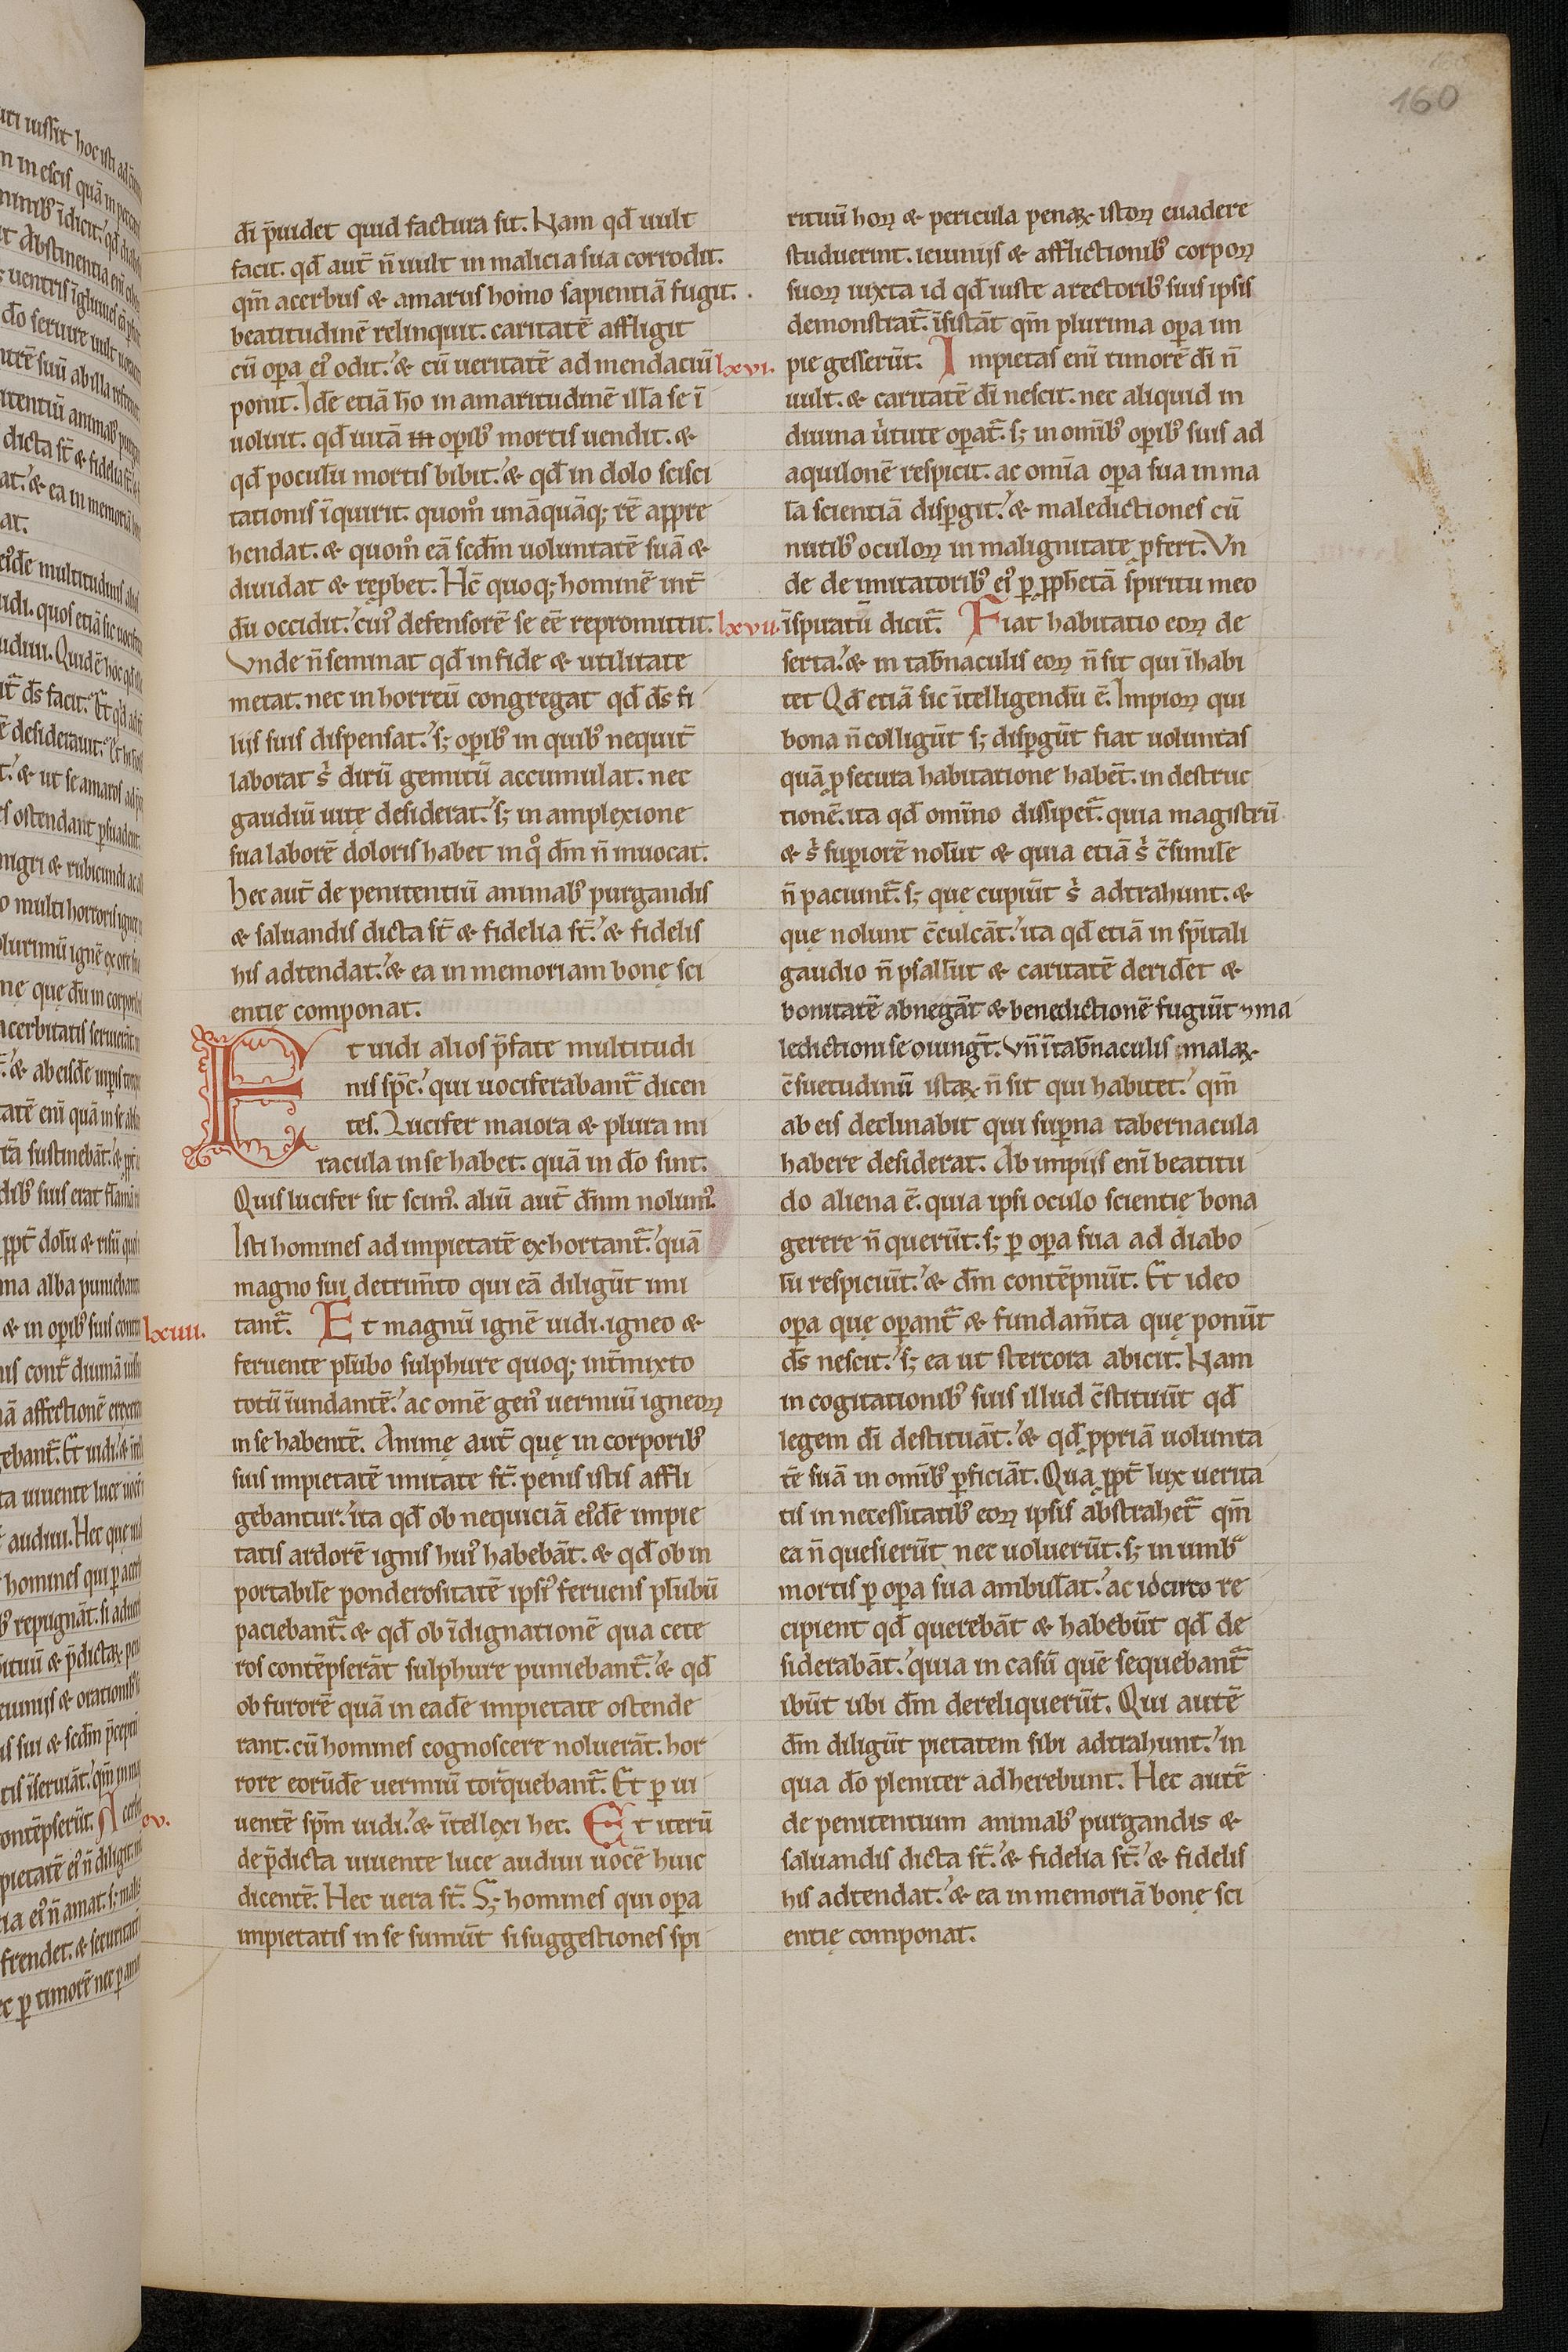 160
dī p̄uidet quid factura sit. Nam qd̄ uult
facit. qd̄ aut̄ n̄ uult in malicia sua corrodit.
qm̄ acerbus & amarus homo sapientiā fugit.
beatitudinē relinquit. caritatē affligit
cū opa ei᾽ odit. & cū ueritatē ad mendaciū
ponit. Idē etiā hō in amaritudinē illā se ī
uoluit. qd̄ uitā in opib᾽ mortis uendit. &
qd̄ poculū mortis bibit. & qd̄ in dolo scisci
tationis īquirit. quom̊ unāquāq; rē appre
hendat. & quom̊ eā scdm̄ uoluntatē suā &
diuidat & rep̱bet. Hē quoq; hominē int̄
dū occidit. cui᾽ defensorē se eē repromittit.
Vnde n̄ seminat qd̄ in fide & utilitate
metat. nec in horreū congregat qd̄ ds̄ fi
liis suis dispensat. s; opib᾽ in quib᾽ nequit̄
laborat s᾽ dirū gemitū accumulat. nec
gaudiū uitę desiderat. s; in amplexione
sua laborē doloris habet in q᾽ dm̄ n̄ inuocat.
Hec aut̄ de penitentiū animab᾽ purgandis
& saluandis dicta st̄ & fidelia st̄. & fidelis
his adtendat. & ea in memoriam bonę sci
entię componat.
Et uidi alios p̄fatę multitudi
nis sp̄c. qui uociferabant᷑ dicen
tes. Lucifer maiora & plura mi
racula in se habet. quā in dō sint.
Quis lucifer sit scim᾽. aliū aut̄ dn̄m nolum᾽.
Isti homines ad impietatē exhortant᷑. quā
magno sui detrim̄to qui eā diligūt imi
lxiiii. tant᷑. Et magnū ignē uidi. igneo &
feruente plūbo sulphure quoq; int̄mixto
totū īundantē. ac omē gen᾽ uermiū igneoꝝ
in se habentē. Animę aut̄ quę in corporib᾽
suis impietatē imitate st̄. penis istis affli
gebantur. ita qd̄ ob nequiciā ei᾽dē impie
tatis ardorē ignis hui᾽ habebāt. & qd̄ ob in
portabilē ponderositatē ipsi᾽ feruens plūbū
paciebant᷑. & qd̄ ob īdignationē qua cete
ros contēpserāt sulphure puniebant᷑. & qd̄
ob furorē quā in eadē impietate ostende
rant. cū homines cognoscere noluerāt. hor
rore eorūdē uermiū torquebant᷑. Et p ui
uentē spm̄ uidi. & ītellexi hec. Et iterū
de p̄dicta uiuente luce audiui uocē huic
dicentē. Hec uera st̄. S; homines qui opa
impietatis in se sumūt si suggestiones spi
rituū hoꝝ & pericula penaꝝ istoꝝ euadere
studuerint. ieiuniis & afflictionib᾽ corpoꝝ
suoꝝ iuxta id qd̄ iuste a rectorib᾽ suis ipsis
demonstrat᷑. īsistāt qm̄ plurima opa im
lxvi. pie gesserūt. Impietas enī timorē dī n̄
uult. & caritatē dī nescit. nec aliquid in
diuina u᾽tute opat᷑. s; in omīb᾽ opib᾽ suis ad
aquilonē respicit. ac omīa opa sua in ma
la scientiā dispgit. & maledictiones cū
nutib᾽ oculoꝝ in malignitate p̱fert. Vn
de de imitatorib᾽ ei᾽ p p̱phetā spiritu meo
lxvii. īspiratū dicit᷑. Fiat habitatio eoꝝ de
serta. & in tab̄naculis eoꝝ n̄ sit qui īhabi
tet Qd̄ etiā sic ītelligendū ē. Impioꝝ qui
bona n̄ colligūt s; dispgūt fiat uoluntas
quā p̱ secura habitatione habēt. in destruc
tionē. ita qd̄ omīno dissipet᷑. quia magistrū
& s᾽ supiorē nolūt & quia etiā s᾽ c̄similē
n̄ paciunt᷑. s; quę cupiūt s᾽ adtrahunt. &
quę nolunt c̄culcāt. ita qd̄ etiā in sp̄itali
gaudio n̄ psallūt & caritatē deridēt &
bonitatē abnegāt & benedictionē fugiūt ⁊ ma
ledictioni se ꝯiungt̄. Vn̄ ī tab̄naculis malaꝝ
c̄suetudinū istaꝝ n̄ sit qui habitet. qm̄
ab eis declinabit qui supna tabernacula
habere desiderat. Ab impiis enī beatitu
do aliena ē. quia ipsi oculo scientię bona
gerere n̄ querūt. s; p opa sua ad diabo
lū respiciūt. & dm̄ contēpnūt. Et ideo
opa quę opant᷑ & fundam̄ta quę ponūt
ds̄ nescit. s; ea ut stercora abicit. Nam
in cogitationib᾽ suis illud c̄stituūt qd̄
legem dī destituāt. & qd̄ p̱priā uolunta
tē suā in omīb᾽ pficiāt. Qua p̱pt̄ lux uerita
tis in necessitatib᾽ eoꝝ ipsis abstrahet᷑ qm̄
ea n̄ quesierūt nec uoluerūt. s; in umb᷑
mortis p opa sua ambulāt. ac idcirco re
cipient qd̄ querebāt & habebūt qd̄ de
siderabāt. quia in casū quē sequebant᷑
ibūt ubi dm̄ dereliquerūt. Qui autē
dm̄ diligūt pietatem sibi adtrahunt. in
qua dō pleniter adherebunt. Hec autē
de penitentium animab᾽ purgandis &
saluandis dicta st̄. & fidelia st̄. & fidelis
his adtendat. & ea in memoriā bonę sci
entię componat.